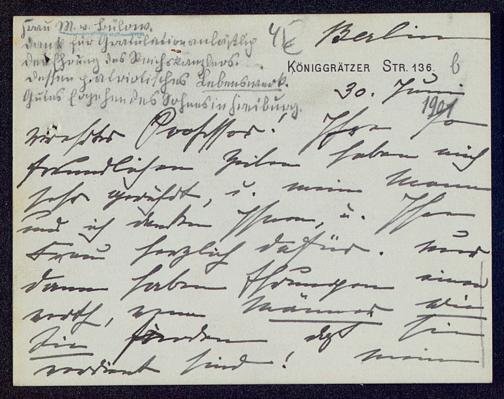 Frau M. v. Bülow.
dankt für Gratulation anläßlig
der Ehrung des Reichskanzlers.
Dessen patriotisches Lebenswerk.
Gutes Ergehen des Sohnes in Freiburg.
Berlin
KÖNIGGRÄTZER STR. 136.
30. Juni
1901
Professor! Ihre so
freundlichen Zeilen haben mich
sehr gerührt, u. mein Mann
und ich danken Ihnen, u. Ihrer
Frau herzlich dafür. Nur
dann haben Ehrungen einen
werth, wenn Männer wie
Sie finden daß sie
verdient sind! Mein